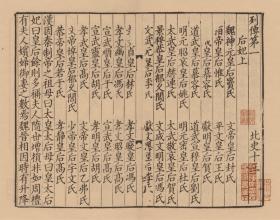 列傳第一 北史十三
后妃上
魏神元皇后竇氏 文帝皇后封氏
桓帝皇后惟氏 平文皇后王氏
昭成皇后慕容氏 獻明皇后賀氏
道武皇后慕容氏 道武宣穆皇后劉氏
明元昭哀皇后姚氏 明元密皇后杜氏
太武皇后赫連氏 太武敬哀皇后賀氏
景穆恭皇后郁久閭氏 文成文明皇后馮氏
文成元皇后李氏 獻文思皇后李氏
孝文貞皇后林氏 孝文廢皇后馮氏
孝文幽皇后馮氏 孝文昭皇后高氏
宣武順皇后于氏 宣武皇后高氏
宣武靈皇后胡氏 孝明皇后胡氏
孝武皇后高氏 文帝文皇后乙弗氏
文帝悼皇后郁久閭氏 廢帝皇后宇文氏
恭帝皇后若干氏 孝靜皇后高氏
漢因秦制帝之祖母曰太皇太后母曰皇太后
妃曰皇后餘則多稱夫人隨世增損非如周禮
有夫人嬪婦御妻之數焉魏晉相因時有升降